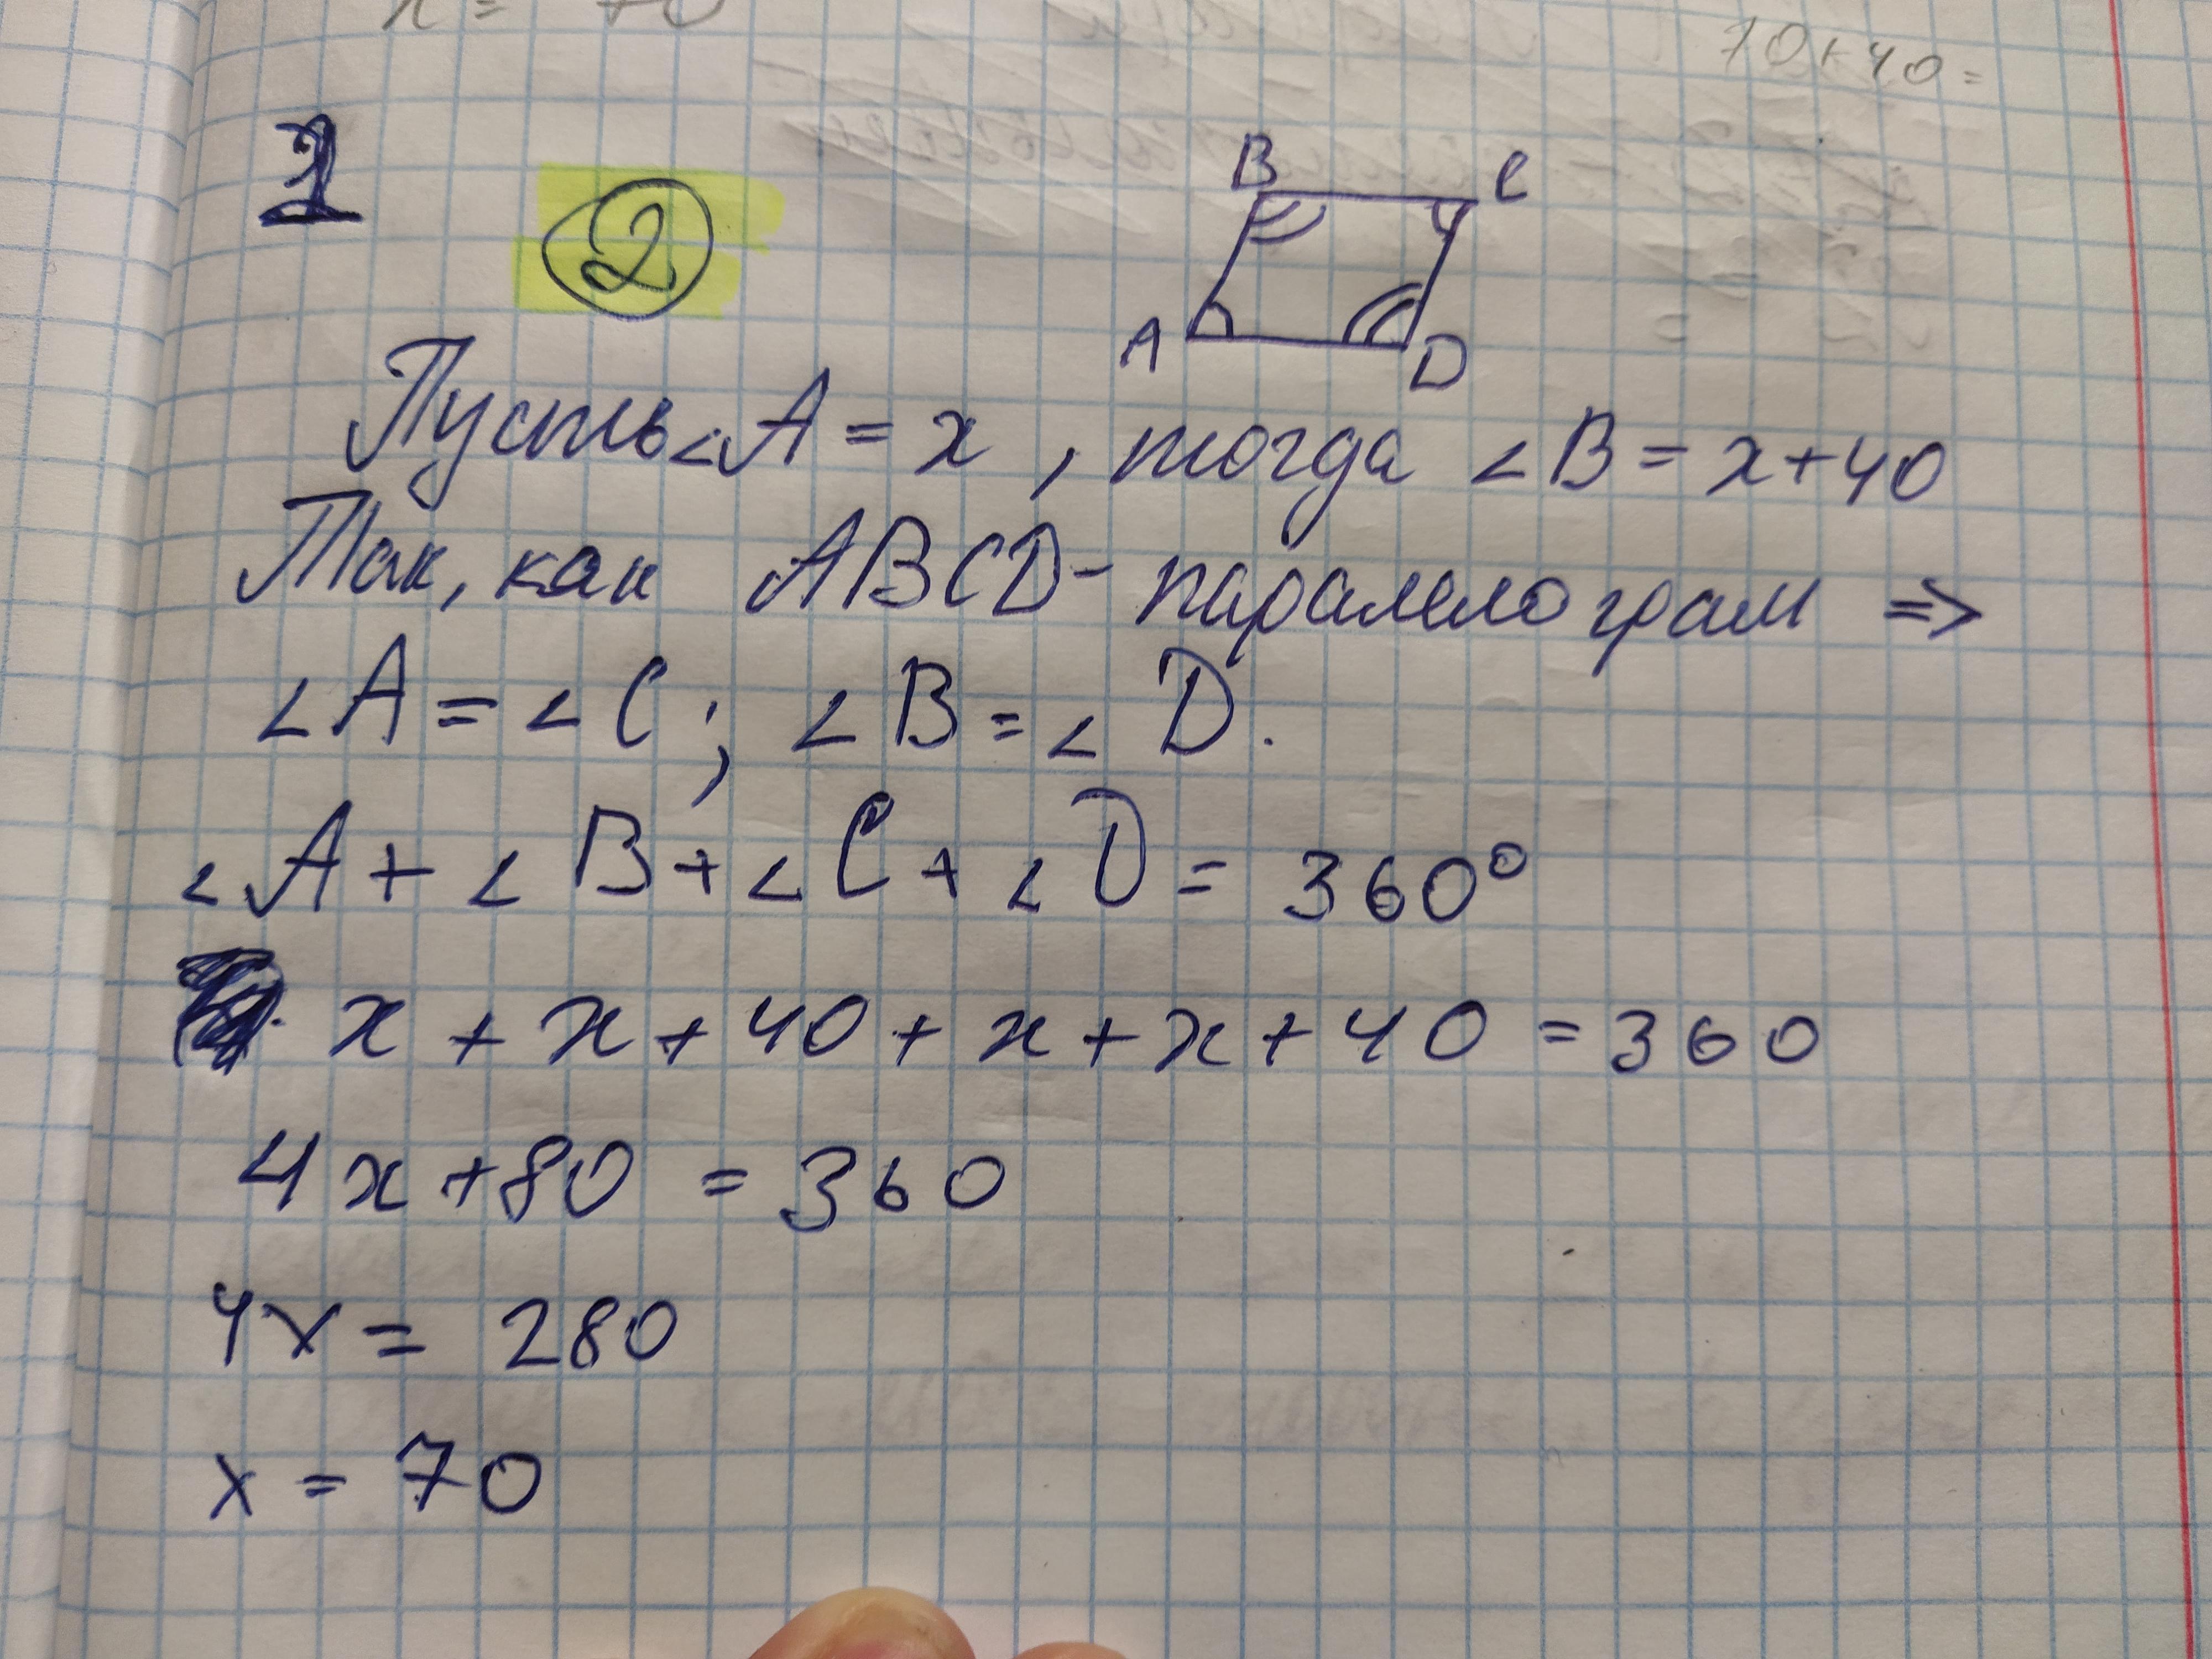 x = 70
70+40=
1
2
B C
A D
Пусть ∠A = x , тогда ∠B = x+40
Так, как ABCD - паралелограм =>
∠A = ∠C ; ∠B = ∠D.
∠A + ∠B + ∠C + ∠D = 360°
x + x + 40 + x + x + 40 = 360
4x + 80 = 360
4x = 280
x = 70